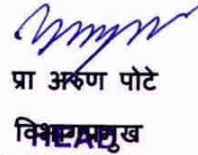 प्रा अरुण पोटे
विभागप्रमुख
HEAD